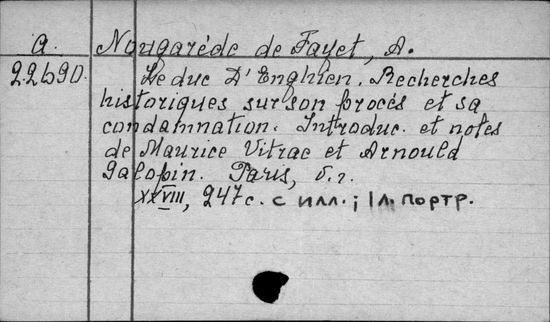 a. Nougaréde de Fayet, A.
22690. Le duc D'Enghien. Recherches
historiques sur son procés et sa
condamnation. Introduc. et notes
de Maurice Vitrac et Arnould
Galopin. Paris, б.г.
XXVIII, 247 с. с илл.; 1 л. портр.